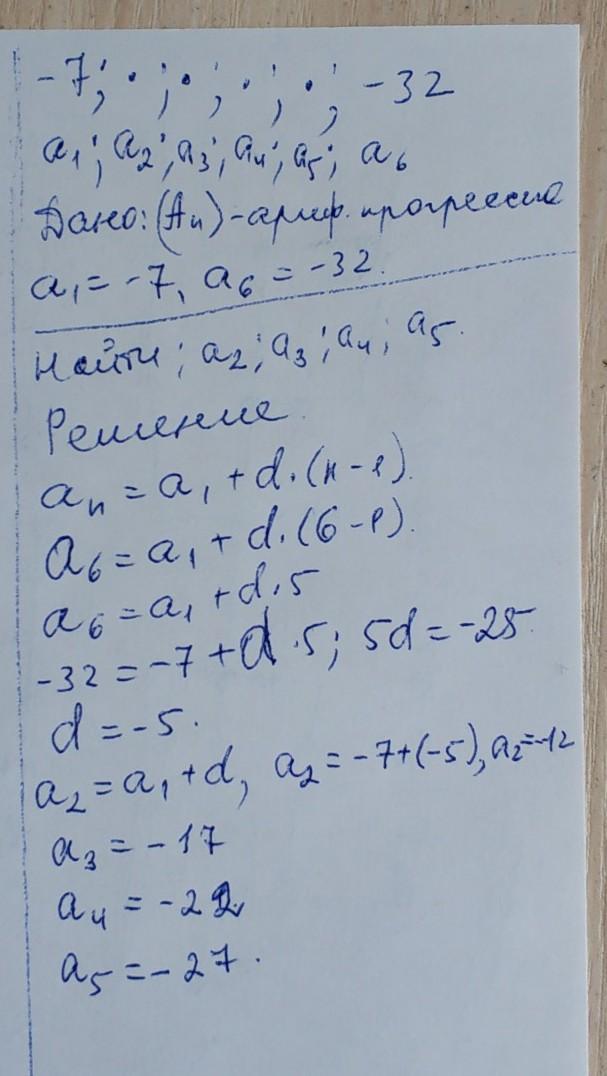 -7; ·; ·; ·; ·; -32
a₁; a₂; a₃; a₄; a₅; a₆
Дано: (Аn) - ариф. прогрессия
a₁ = -7, a₆ = -32.
Найти; a₂; a₃; a₄; a₅.
Решение.
an = a₁ + d·(n-1).
a₆ = a₁ + d·(6-1).
a₆ = a₁ + d·5
-32 = -7 + d·5; 5d = -25.
d = -5.
a₂ = a₁ + d, a₂ = -7+(-5), a₂ = -12
a₃ = -17
a₄ = -22
a₅ = -27.